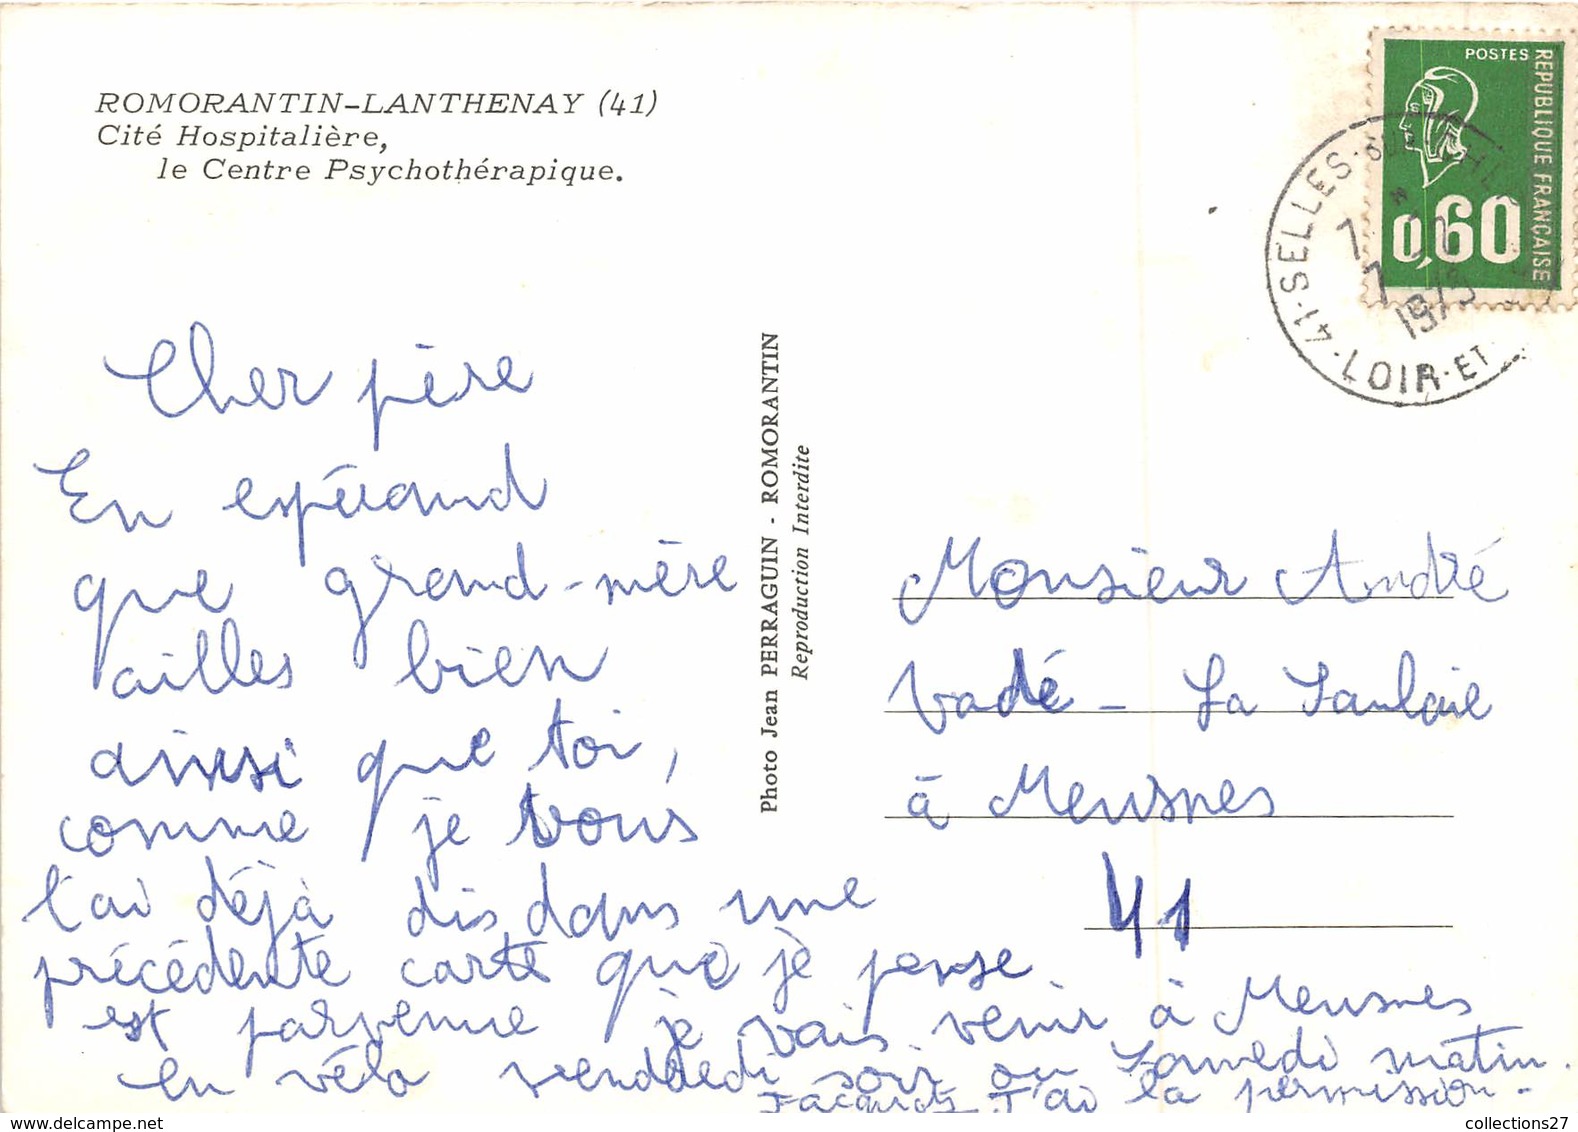 ROMORANTIN-LANTHENAY (41)
Cité Hospitalière,
le Centre Psychothérapique.
POSTES
REPUBLIQUE FRANÇAISE
0,60
41·SELLES·SUR·CHER
7
7
1975
LOIR-ET
Cher père
En espérand
que grand-mère
ailles bien
ainsi que toi,
comme je vous
l'ai déjà dis dans une
précédente carte que je pense
est parvenue je vais venir à Meusnes
en vélo vendredi soir ou samedi matin.
Jacques J'ai la permission-
Photo Jean PERRAGUIN - ROMORANTIN
Reproduction Interdite
Monsieur André
Vadé - La Saulaie
à Meusnes
41
collections27